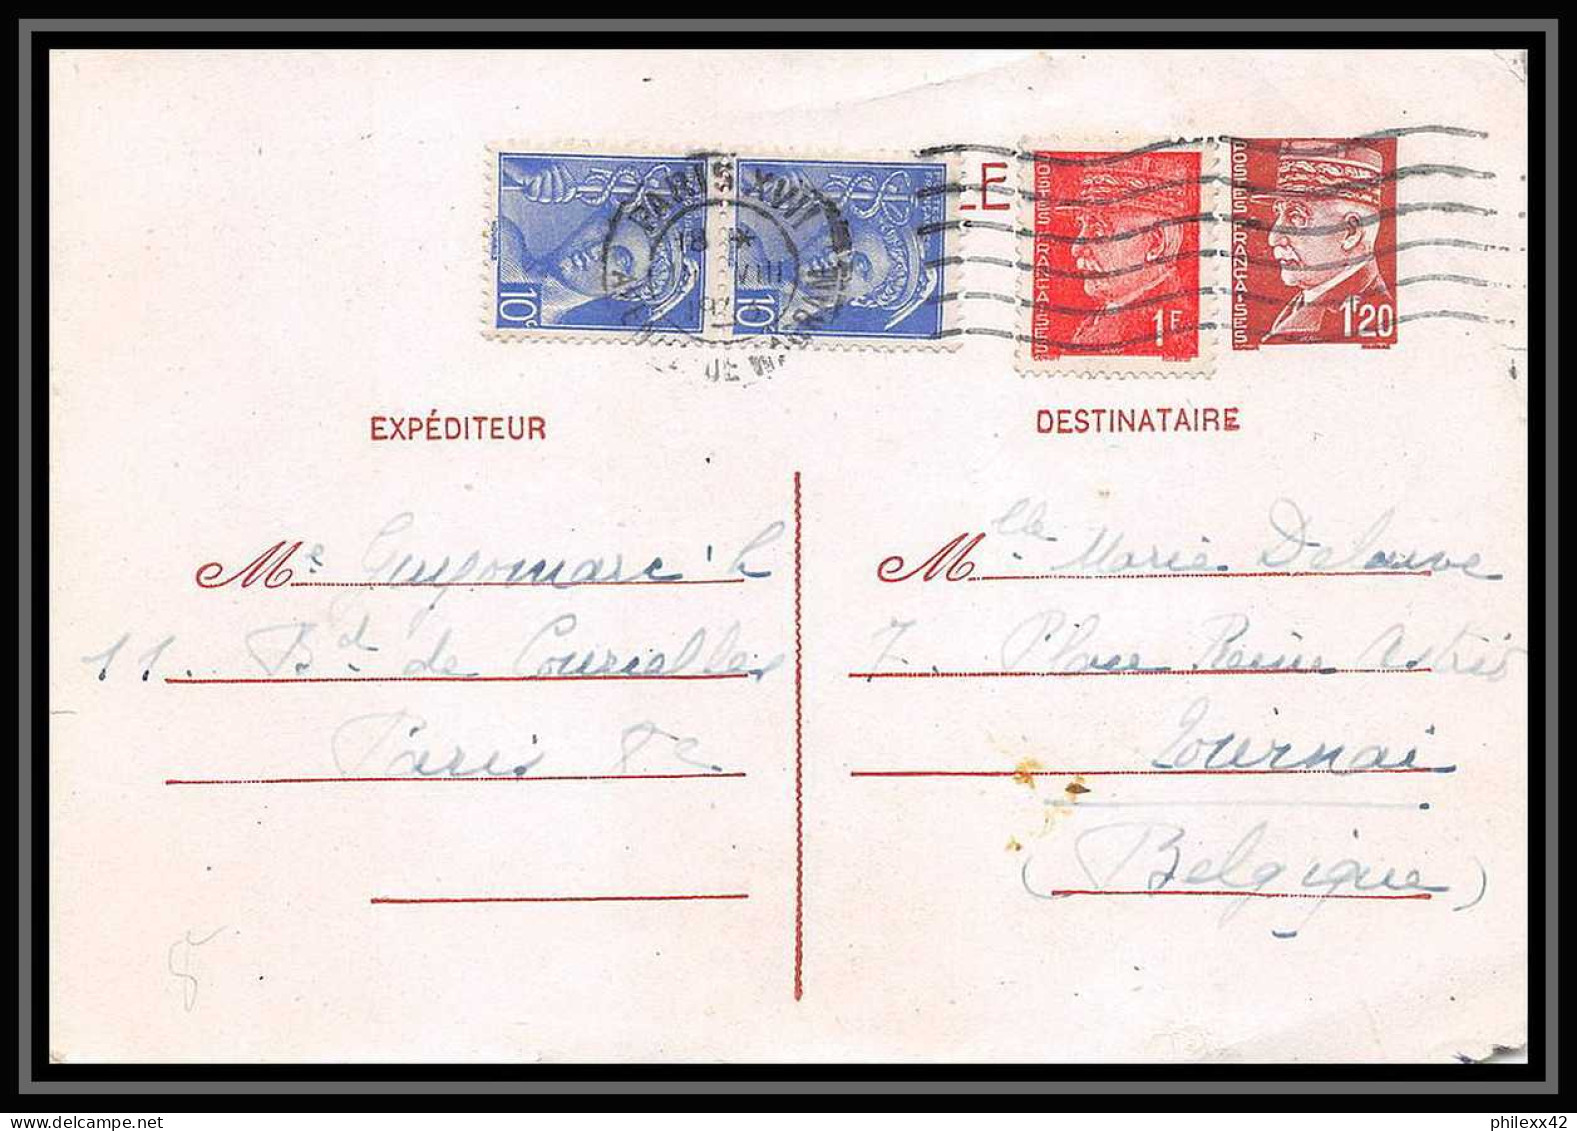 POSTES FRANÇAISES
POSTES FRANÇAISES
PARIS XVII
18 *
VIII
DE WAGRAM
10c
10c
LE
1F
1F20
EXPÉDITEUR
DESTINATAIRE
Me Guyomarc'h
11. Bd de Courcelles
Paris 8e
Mlle Marie Delauve
7. Place Reine Astrid
Tournai
(Belgique)
8
philexx42